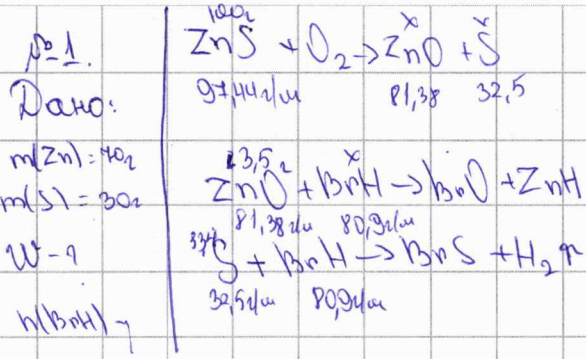 №1.
Дано:
m(Zn)=70г
m(S)=30г
W-?
n(BrH)-?
100г x x
ZnS + O2 → ZnO + S
97,44г/м 81,38 32,5
13,5г x
ZnO + BrH → BrO + ZnH
81,38г/м 80,9г/м
S + BrH → BrS + H2↑
32,5г/м 80,9г/м